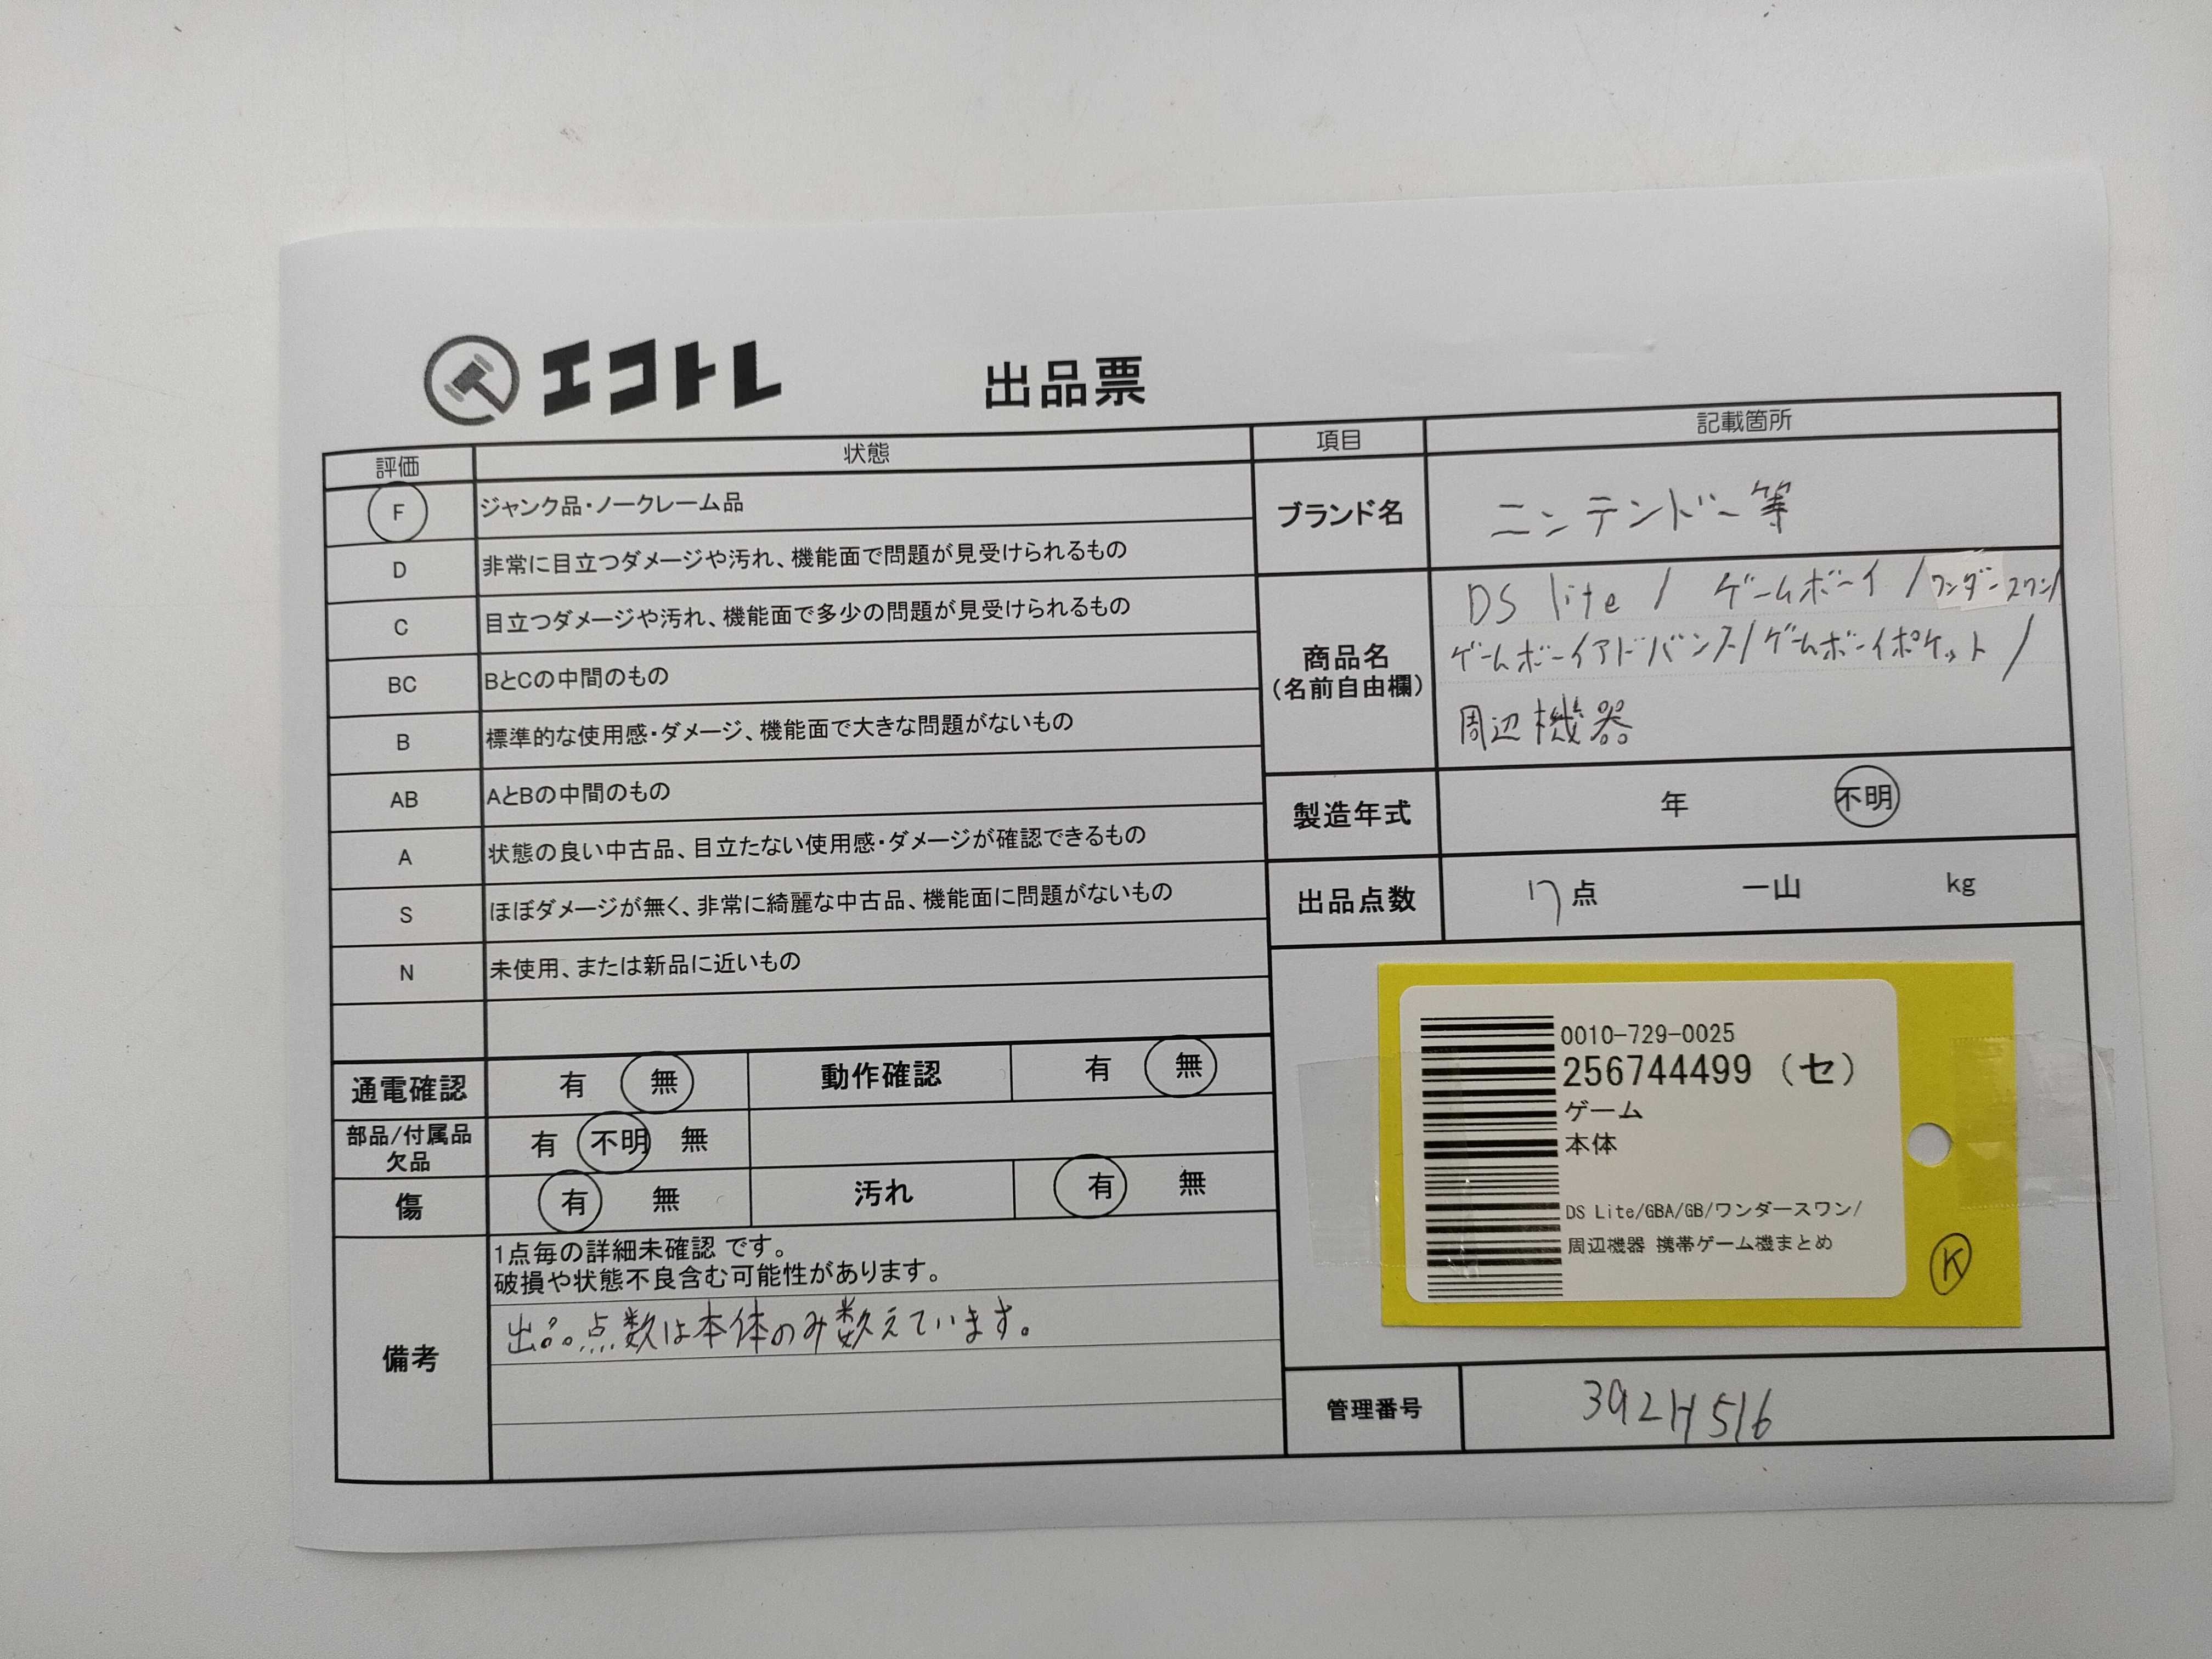 エコトレ
出品票
評価 状態
F ジャンク品・ノークレーム品
D 非常に目立つダメージや汚れ、機能面で問題が見受けられるもの
C 目立つダメージや汚れ、機能面で多少の問題が見受けられるもの
BC BとCの中間のもの
B 標準的な使用感・ダメージ、機能面で大きな問題がないもの
AB AとBの中間のもの
A 状態の良い中古品、目立たない使用感・ダメージが確認できるもの
S ほぼダメージが無く、非常に綺麗な中古品、機能面に問題がないもの
N 未使用、または新品に近いもの
通電確認 有 無 動作確認 有 無
部品/付属品
欠品 有 不明 無
傷 有 無 汚れ 有 無
備考
1点毎の詳細未確認 です。
破損や状態不良含む可能性があります。
出品点数は本体のみ数えています。
項目 記載箇所
ブランド名 ニンテンドー等
商品名
(名前自由欄)
DS lite / ゲームボーイ / ワンダースワン/
ゲームボーイアドバンス/ゲームボーイポケット /
周辺機器
製造年式 年 不明
出品点数 17点 一山 kg
0010-729-0025
256744499 (セ)
ゲーム
本体
DS Lite/GBA/GB/ワンダースワン/
周辺機器 携帯ゲーム機まとめ
K
管理番号 392H516